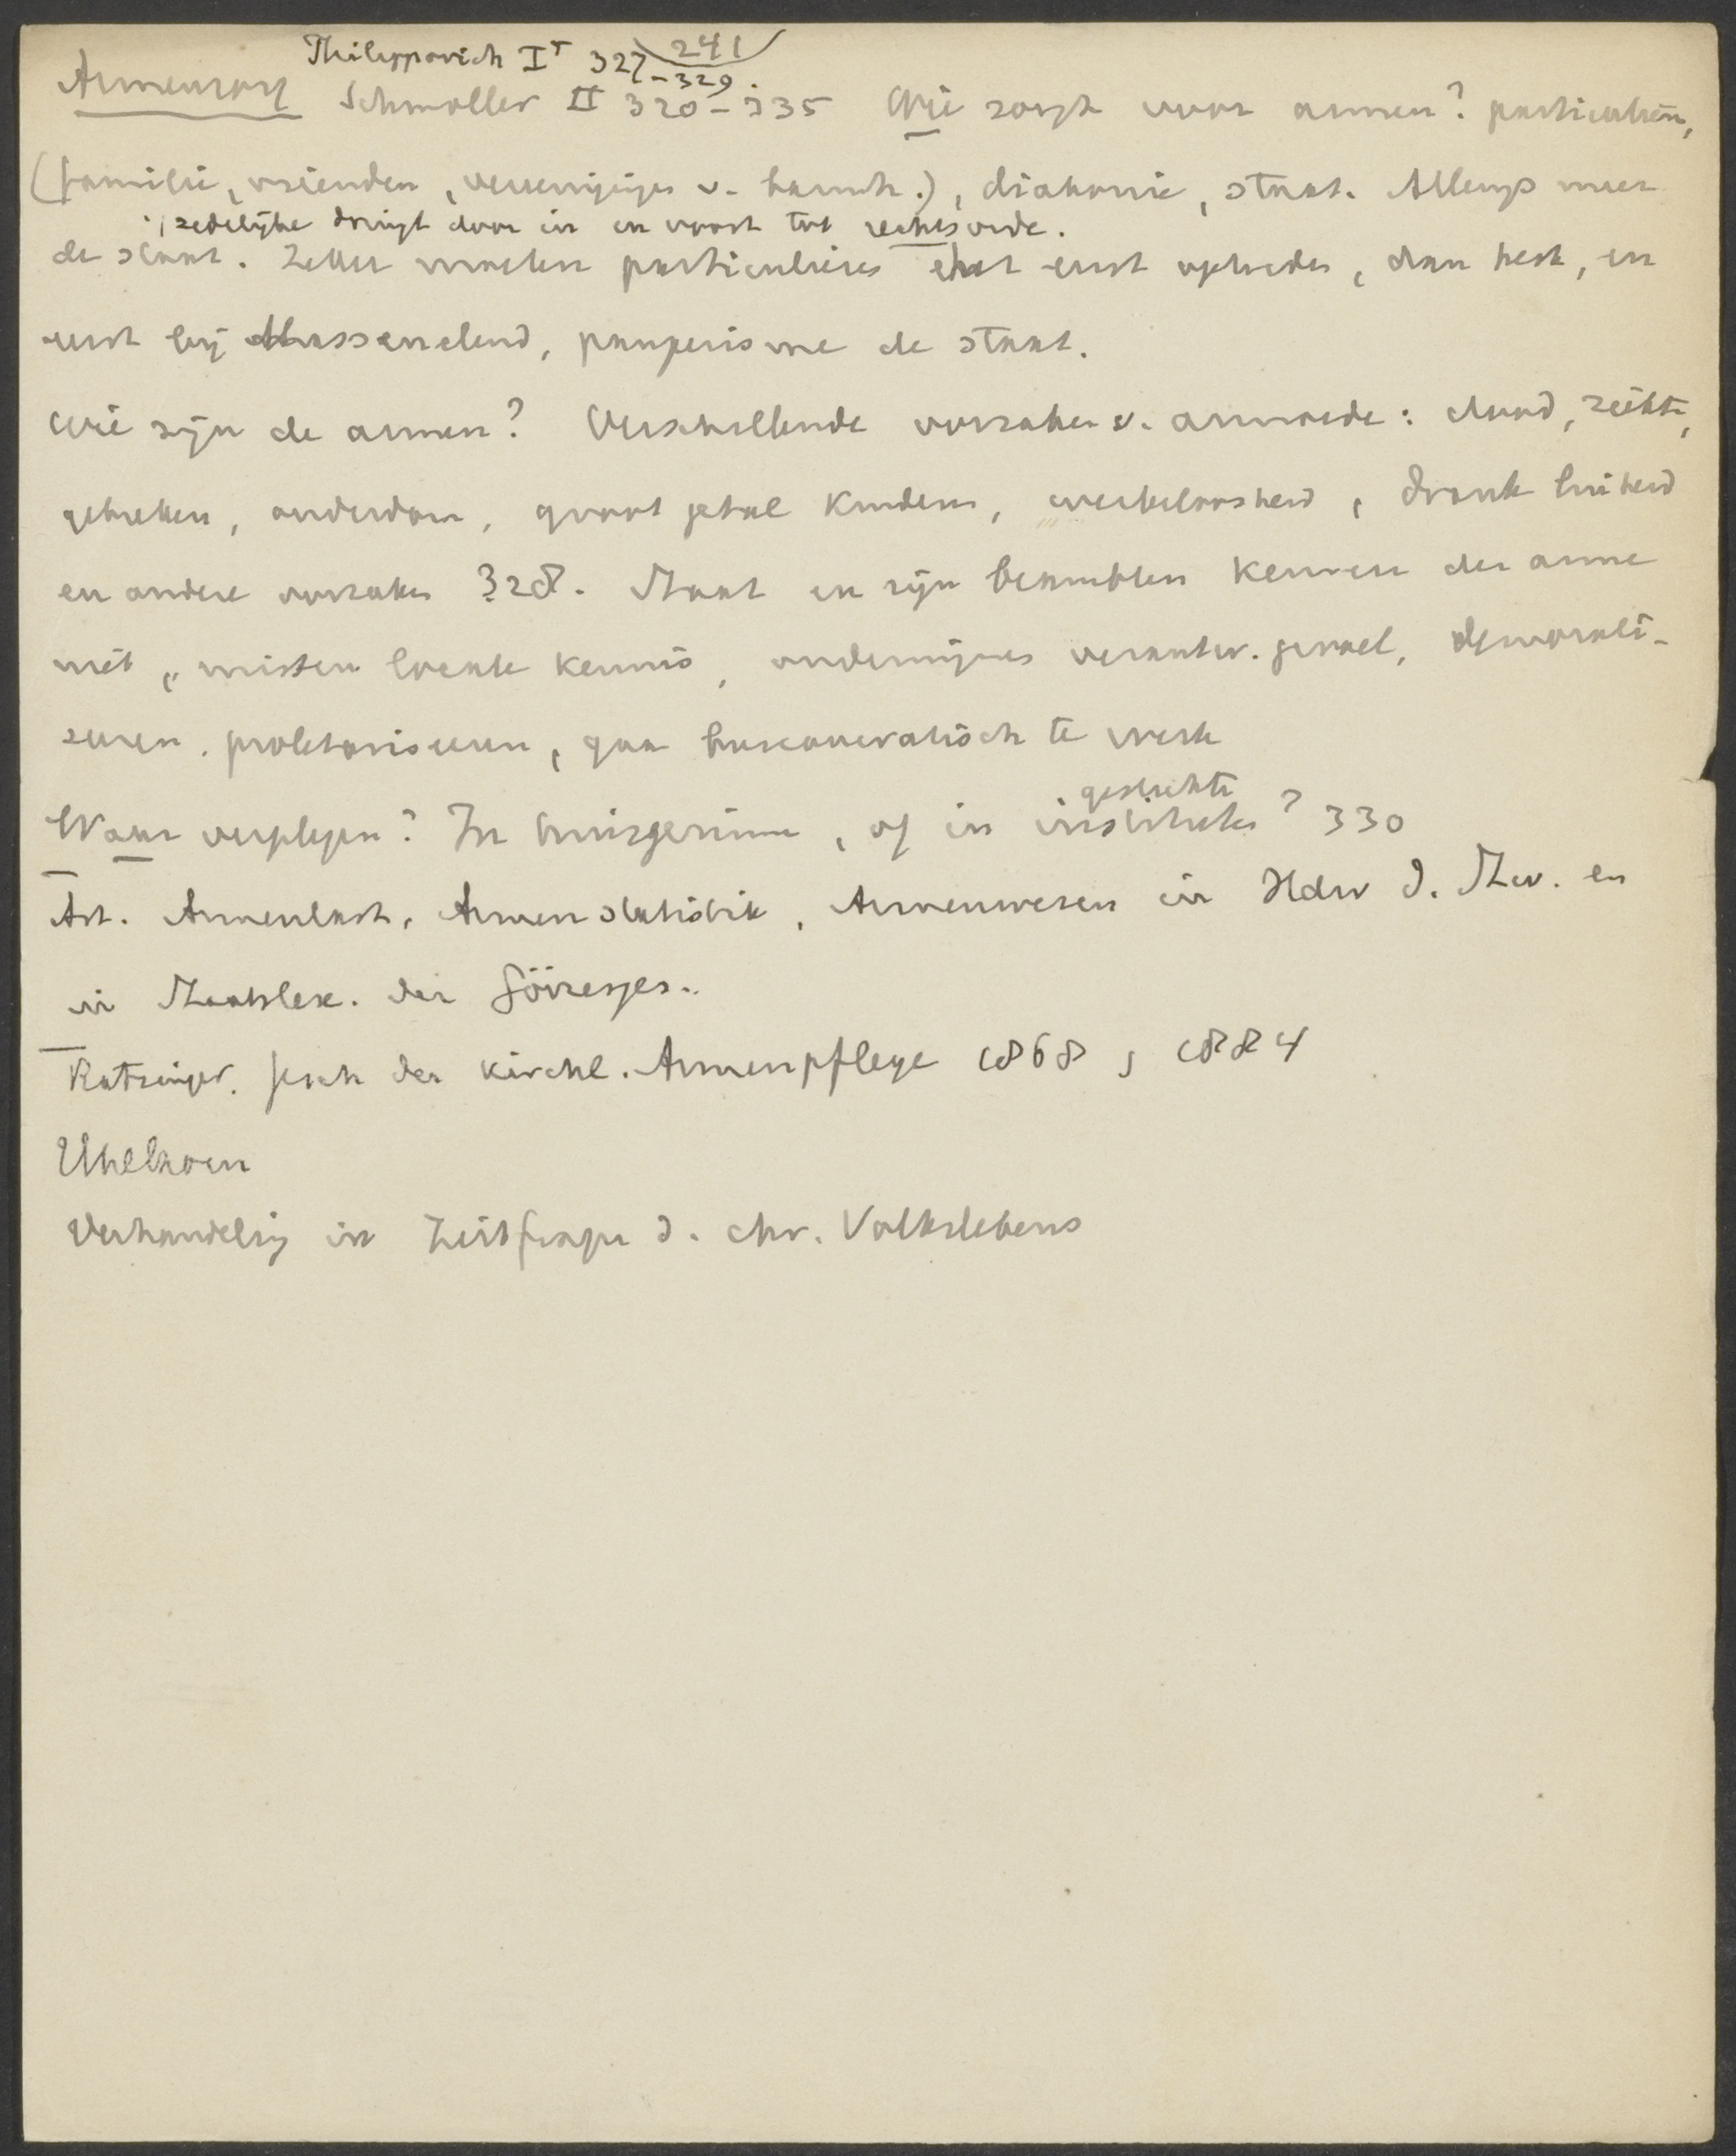 Philippovich I⁵ 327-329. 241
Armenzorg Schmoller II 320-335 Wie zorgt voor armen? particulieren,
(familie, vrienden, vereenigingen v. barmh.), diakonie, staat. Allengs meer
't zedelijke dringt door in en voort tot rechtsorde.
de staat. Zeker moeten particulieren eerst optreden, dan kerk, en
eerst bij Massenelend, pauperisme de staat.
Wie zijn de armen? Verschillende oorzaken v. armoede: dood, ziekte,
gebreken, ouderdom, groot getal kinderen, werkeloosheid, drank luiheid
en andere oorzaken 328. Staat en zijn beambten kennen den arme
niet, missen locale kennis, ondermijnen verantw. gevoel, demorali-
seeren. proletariseeren, gaan bureaucratisch te werk
Waar verplegen? In huisgezinnen, of in instituten? 330
gestichten
Art. Armenlast, Armenstatistik, Armenwesen in Hdw d. Stw. en
in Staatslex. der Görresges..
Ratzinger. Gesch der Kirchl. Armenpflege 1868, 1884
Uhlhorn
Verhandeling in Zeitfragen d. chr. Volkslebens